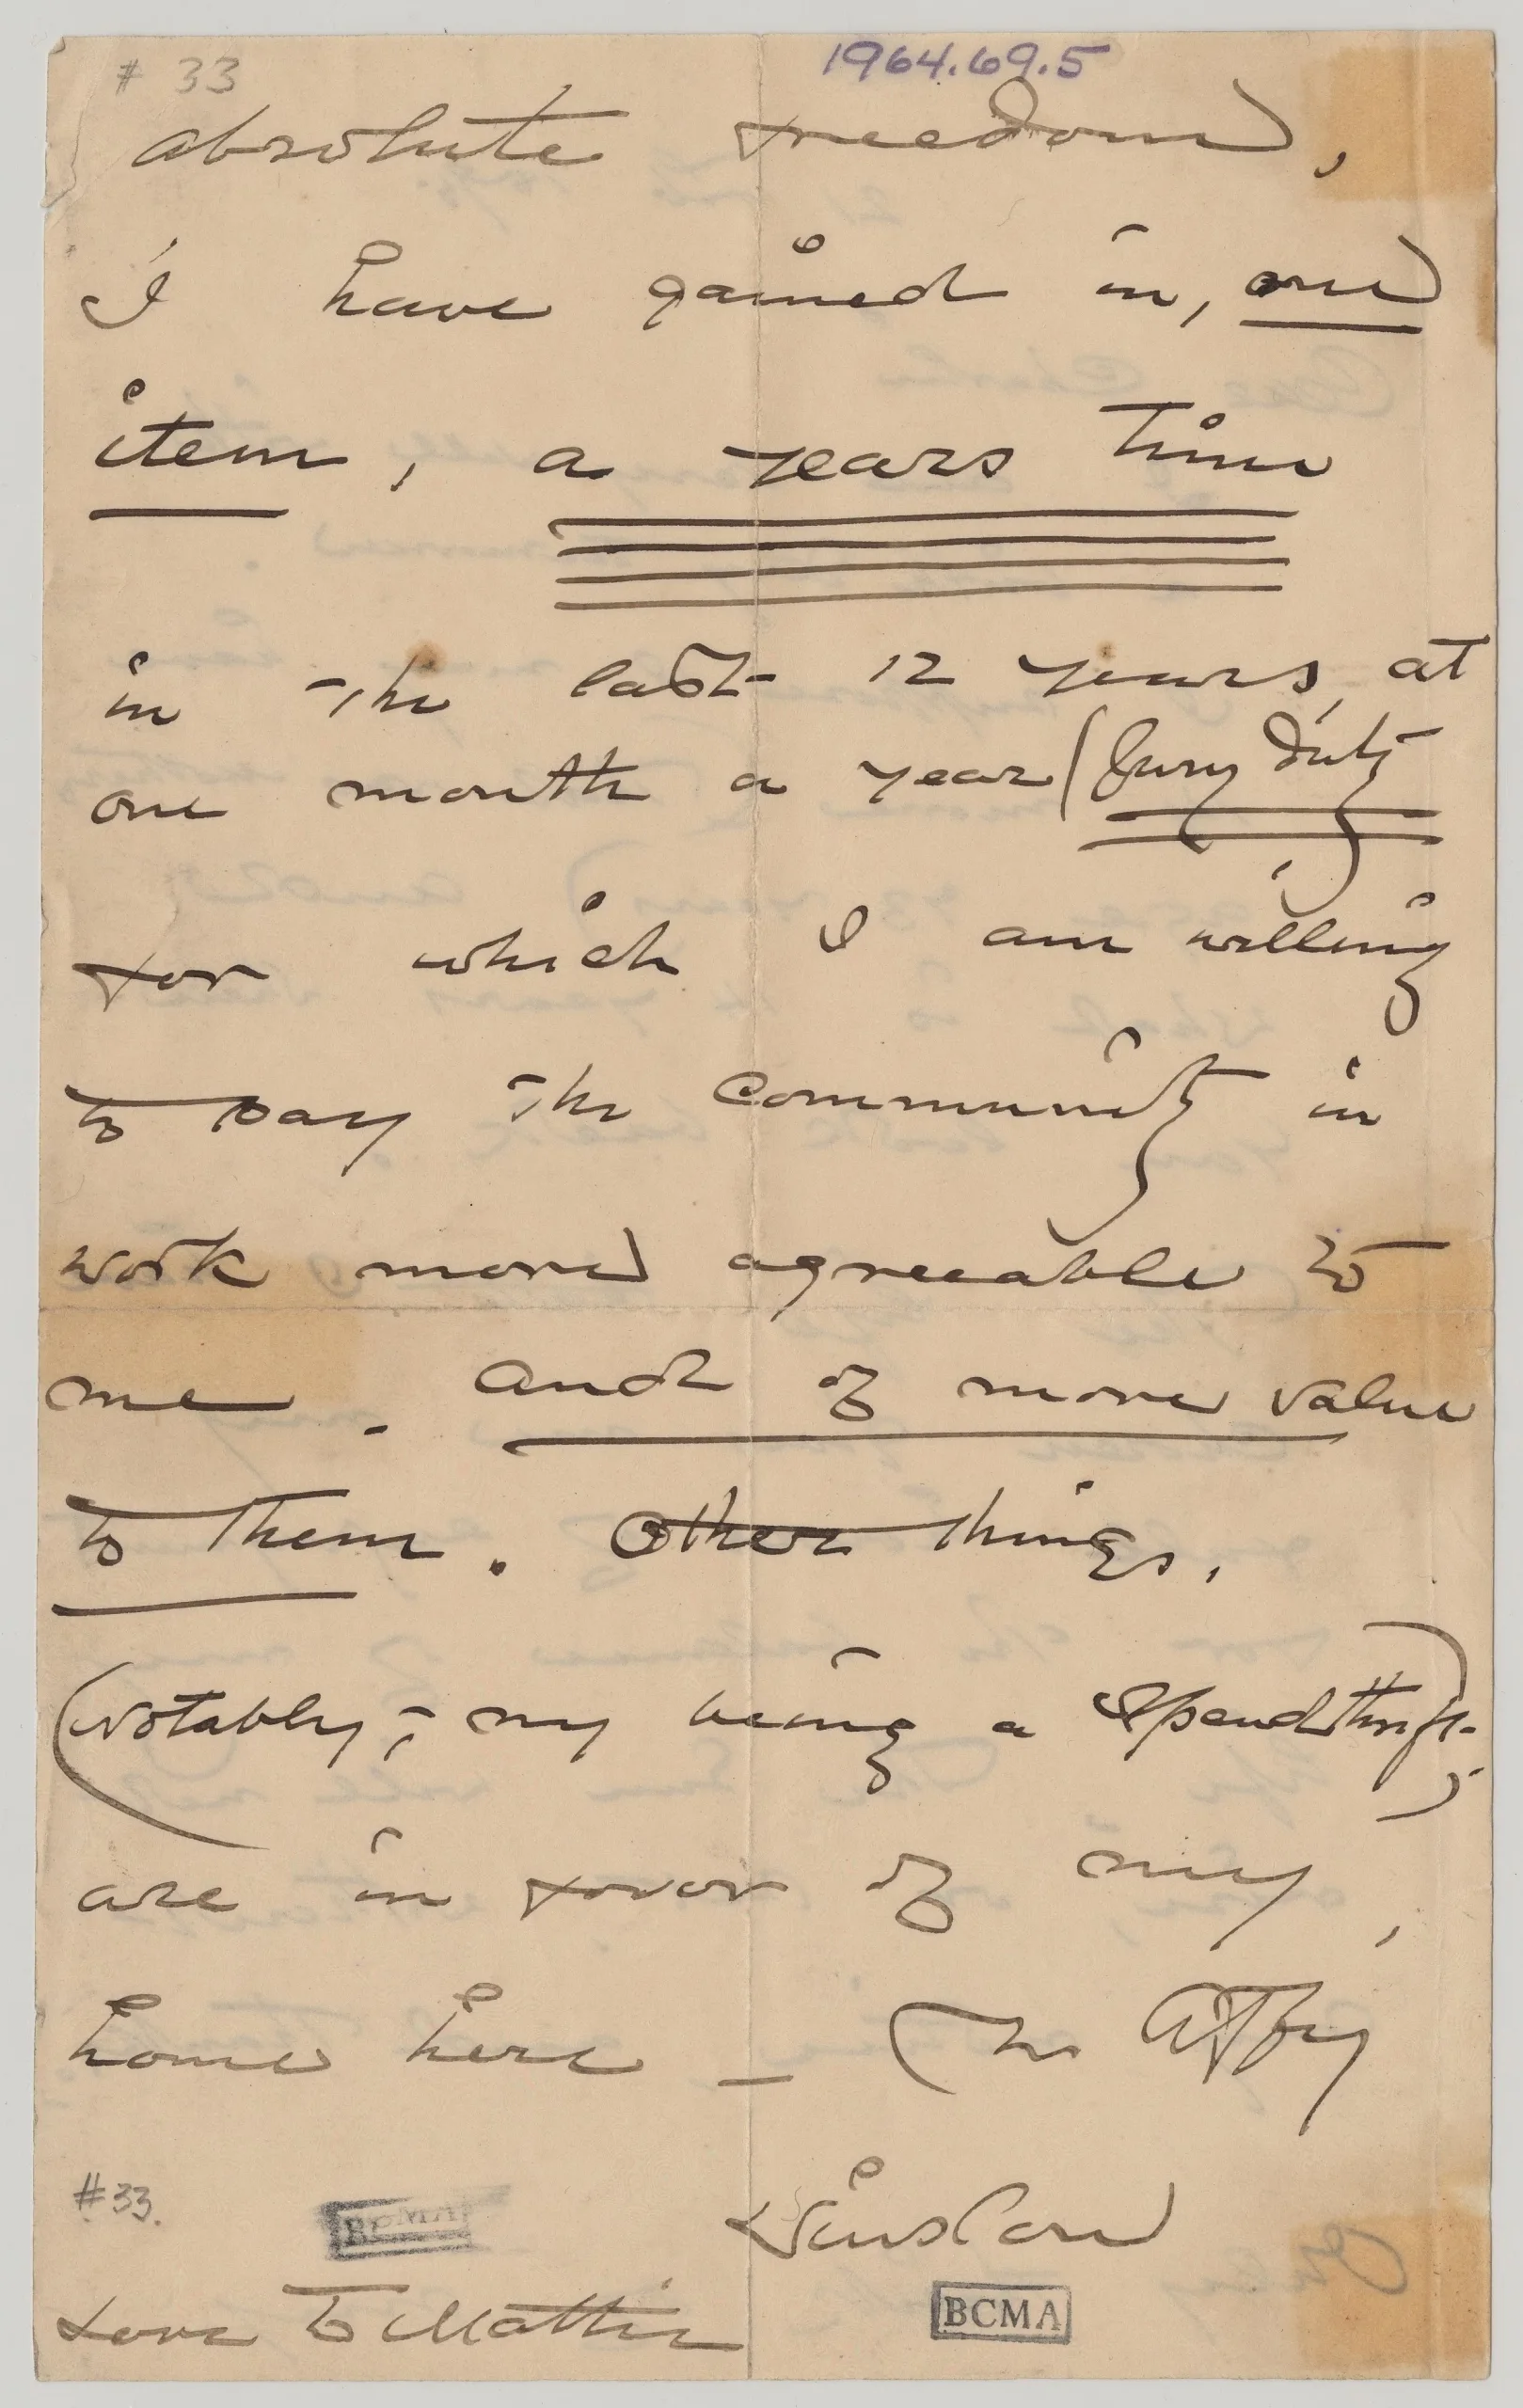 # 33
1964.69.5
absolute freedom,
I have gained in, one
item, a years time
in the last 12 years, at
one month a year (Jury Duty)
for which I am willing
to pay the community in
work more agreeable to
me. and of more value
to them. Other things,
(Notably, my being a Spendthrift)
are in favor of my,
home here —
Winslow
#33.
BCMA
BCMA
Love to Mattie